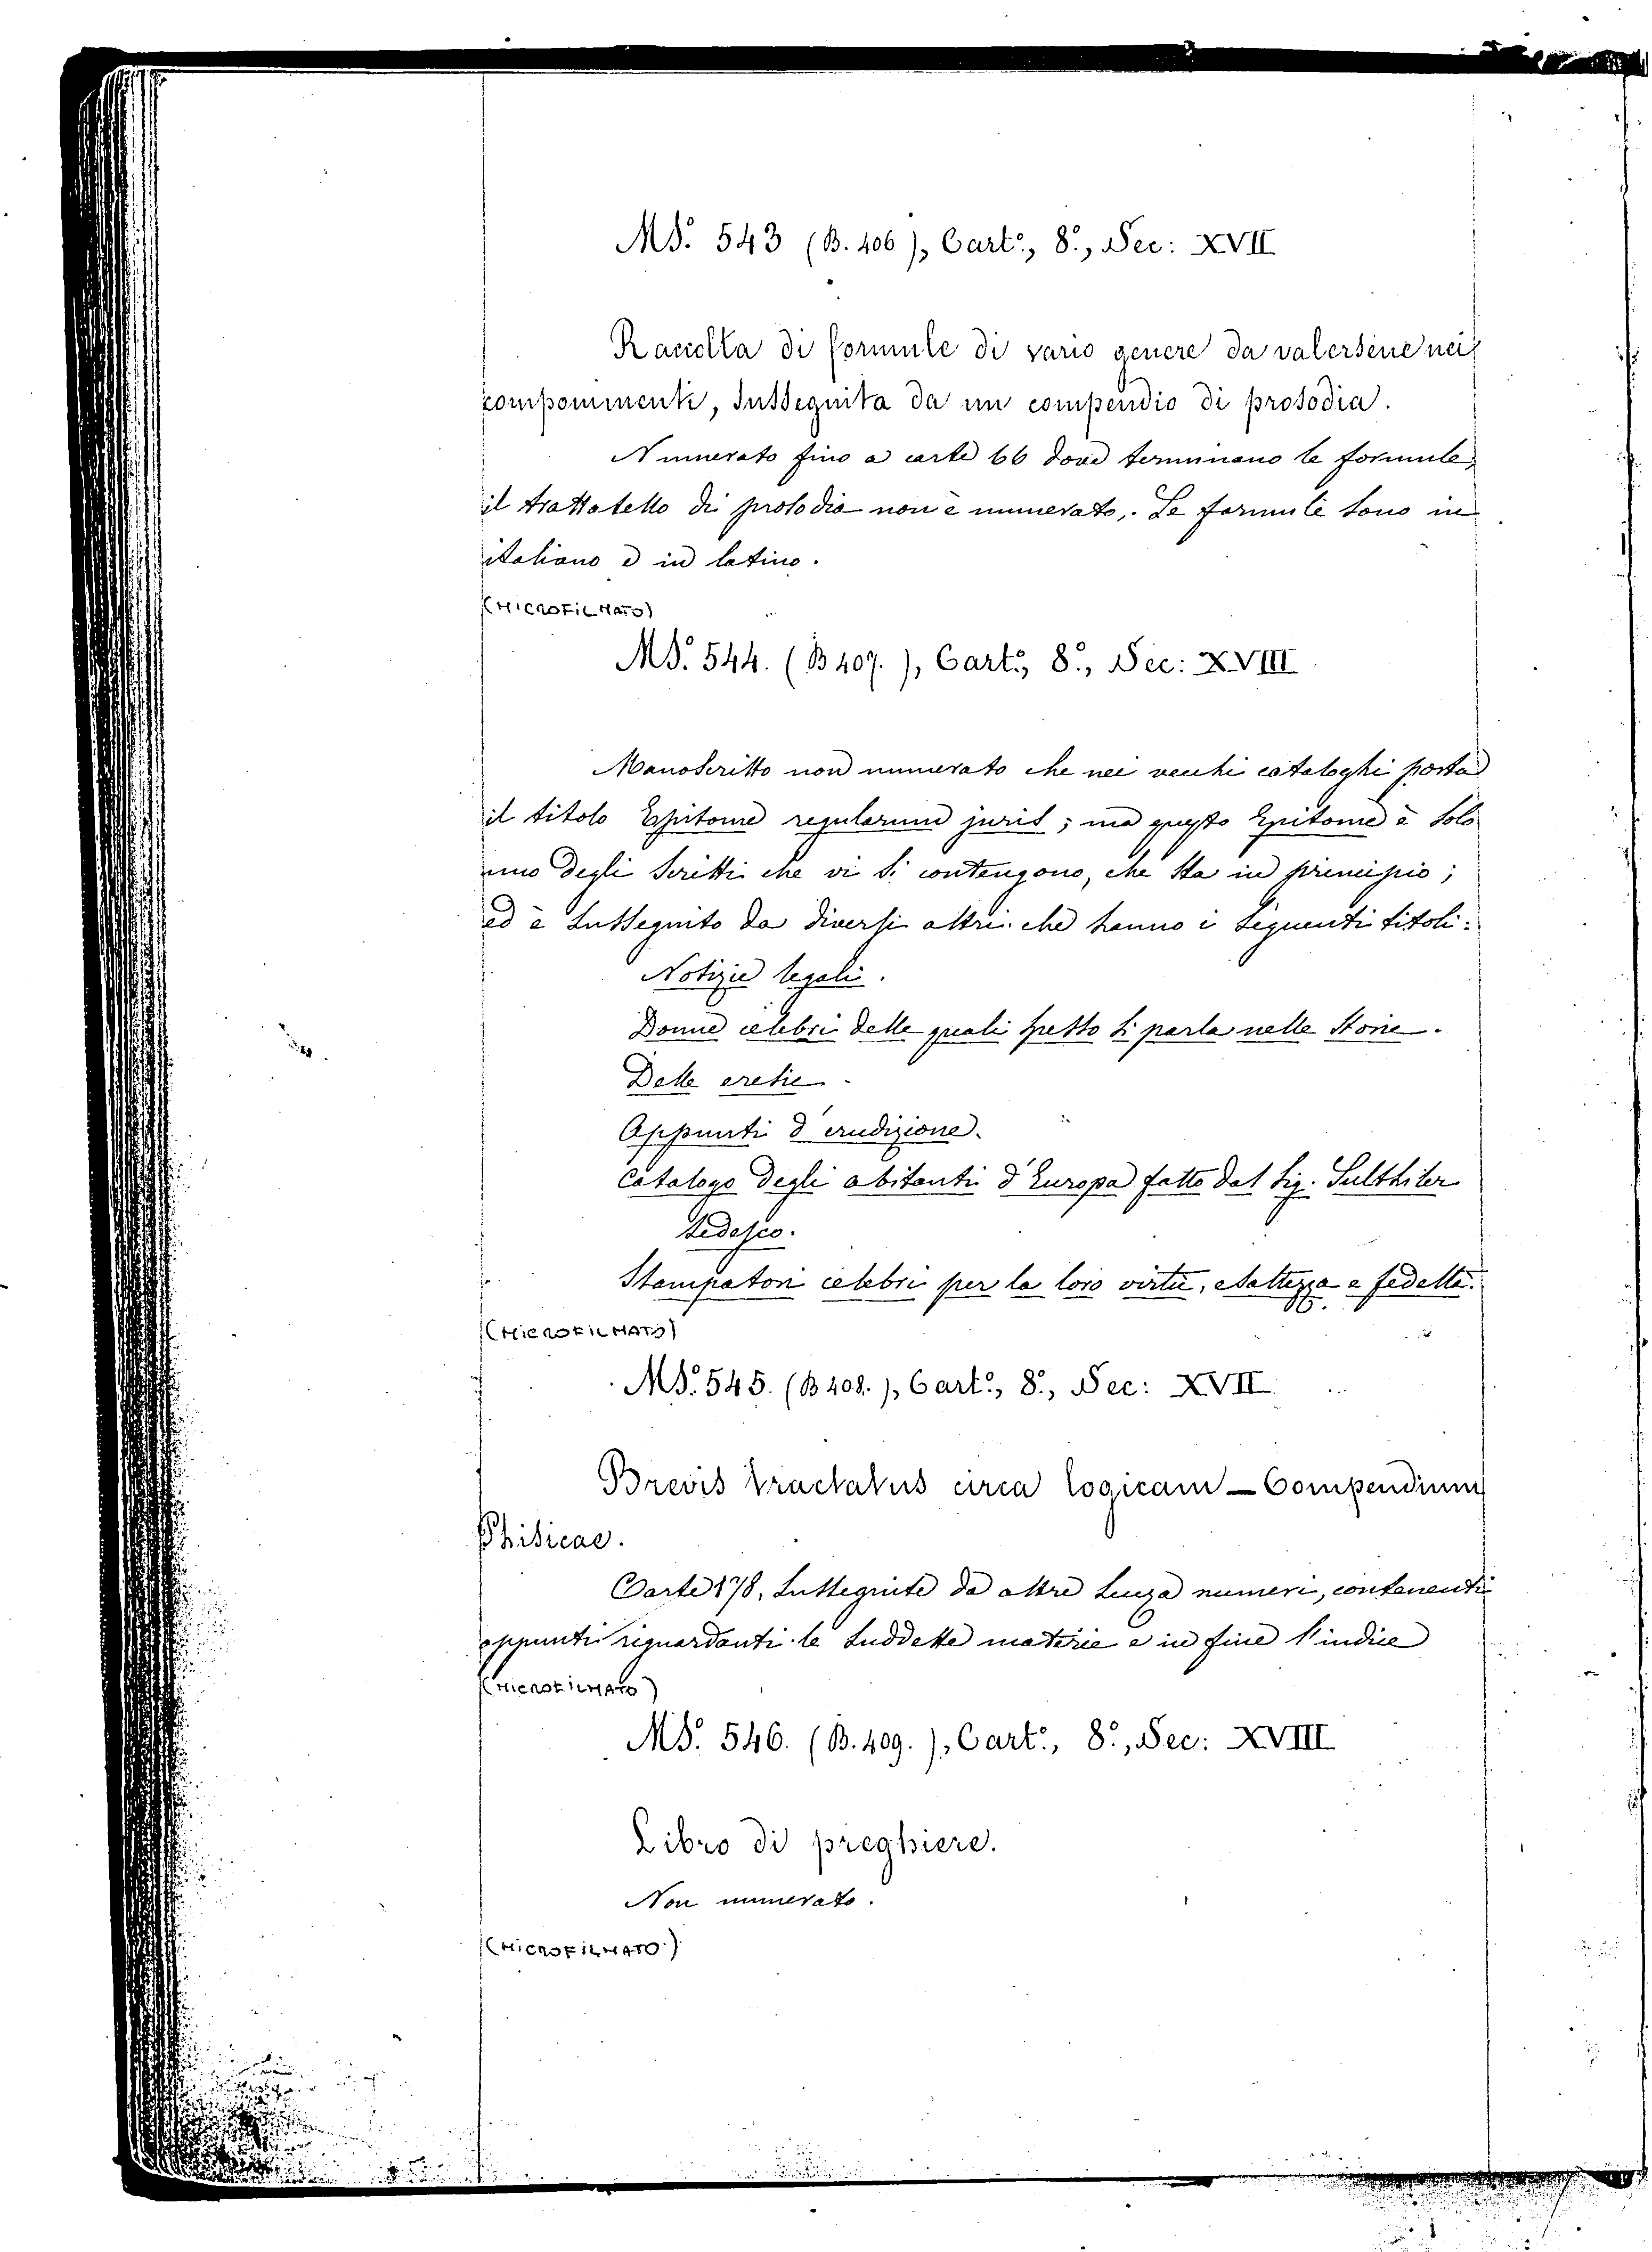 MS. 543 (B. 406), Cart:, 8º, Sec: XVII
Raccolta di formule di vario genere da valersene nei
componimenti, susseguita da un compendio di prosodia.
Numerato fino a carte 66 dove terminano le formule,
il trattatello di prosodia non è numerato. Le formule sono in
italiano e in latino.
(MICROFILMATO)
MS. 544. (B 407.), Cart:, 8º, Sec: XVIII
Manoscritto non numerato che nei vecchi cataloghi porta
il titolo Epitome regularum juris; ma questo Epitome è solo
uno degli scritti che vi si contengono, che sta in principio;
ed è susseguito da diversi altri che hanno i seguenti titoli:
Notizie legali.
Donne celebri delle quali spesso si parla nelle storie.
Delle eresie.
Appunti d'erudizione.
Catalogo degli abitanti d'Europa fatto dal Sig. Sulthiler
tedesco.
Stampatori celebri per la loro virtù, esattezza e fedeltà.
(MICROFILMATO)
MS. 545. (B 408.), Cart:, 8º, Sec: XVII
Brevis tractatus circa logicam — Compendium
Phisicae.
Carte 178, susseguite da altre senza numeri, contenenti
appunti riguardanti le suddette materie e in fine l'indice
(MICROFILMATO)
MS. 546. (B. 409.), Cart:, 8º, Sec: XVIII
Libro di preghiere.
Non numerato.
(MICROFILMATO)